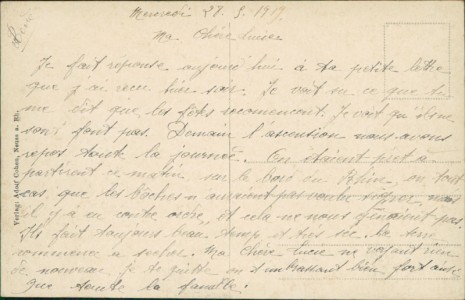 Mercredi 28. 5. 1919
Ma Chère Lucie
Je fait reponse aujourd'hui à ta petite lettre
que j'ai recu hier soir. Je voit su ce que tu
me dit que les fêtes recomencent. Je voit qu'ils ne
s'en font pas. Demain l'ascention nous avons
repos toute la journée. On étaient prêt à
partir ce matin sur le bord du Rhin, en tout
cas, que les bôches n'auraient pas voulu signer, mais
il y à eu contre ordre, et cela ne nous gênaient pas.
Ils fait toujours beau temps et très sec. La terre
commence a sécher. Ma Chère Lucie ne voyant rien
de nouveau je te quitte en t'embrassant bien fort ainsi
que toute la famille.
Verlag: Adolf Cohen, Neuss a. Rh.